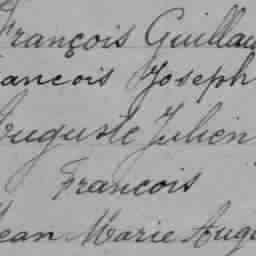 François Guillau
ancois Joseph
Auguste Julien
Francois
Jean Marie Augu